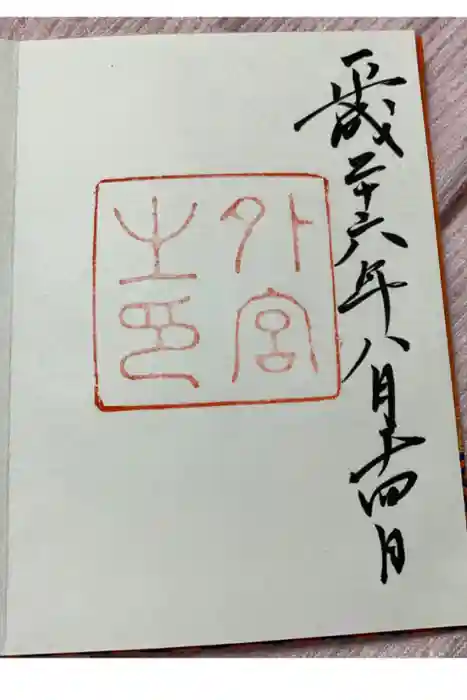 平成二十六年八月二十四日
外宮
之印